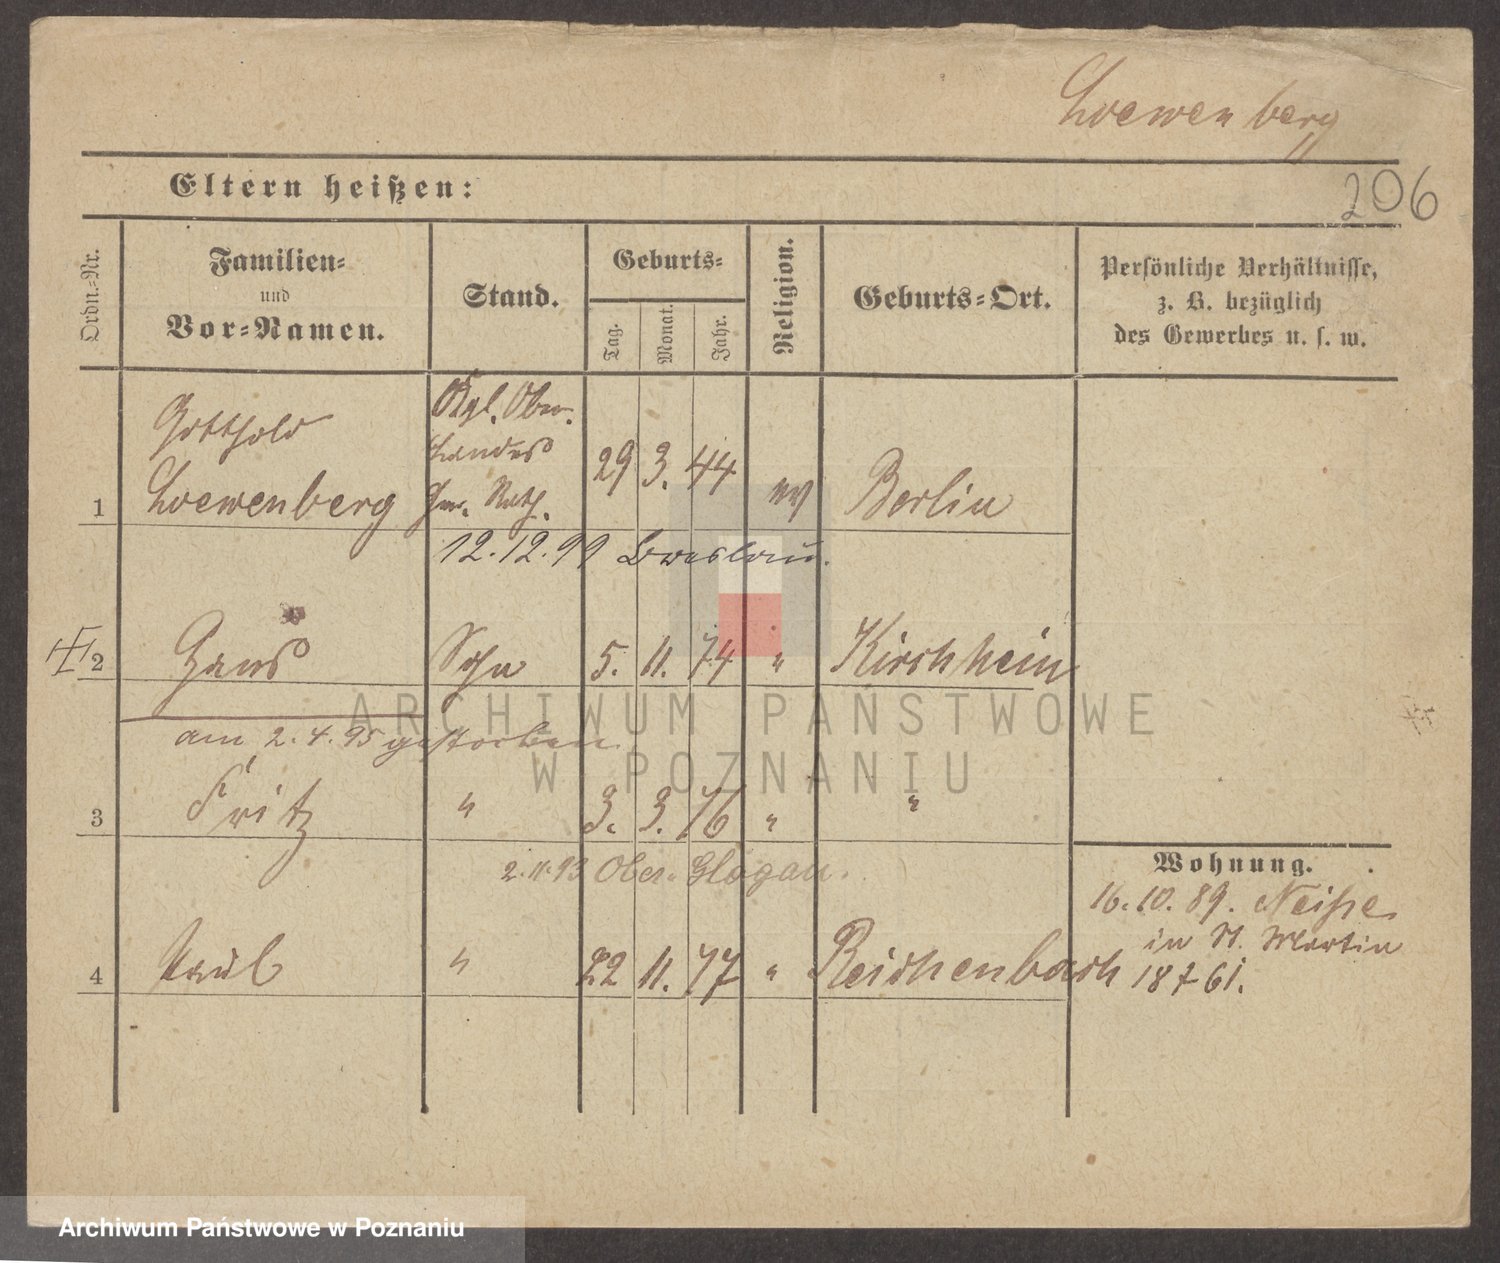 Loewenberg
206
Eltern heißen:
Ordn.-Nr.
Familien-
und
Vor-Namen.
Stand.
Geburts-
Tag.
Monat.
Jahr.
Religion.
Geburts-Ort.
Persönliche Verhältnisse,
z. B. bezüglich
des Gewerbes u. s. w.
1 Gotthold Loewenberg Kgl. Ober. Landes Ger. Rath. 29 3. 44 ev Berlin
12.12.99 Breslau.
2 Hans Sohn 5. 11. 74 " Kirchhein
am 2.4.95 gestorben
3 Fritz " 3. 3. 76 " "
2.11.93 Ober-Glogau.
Wohnung.
16.10.89. Neisse
in St. Martin
18 61.
4 Paul " 22 11. 77 " Reichenbach
ARCHIWUM PAŃSTWOWE
W POZNANIU
Archiwum Państwowe w Poznaniu